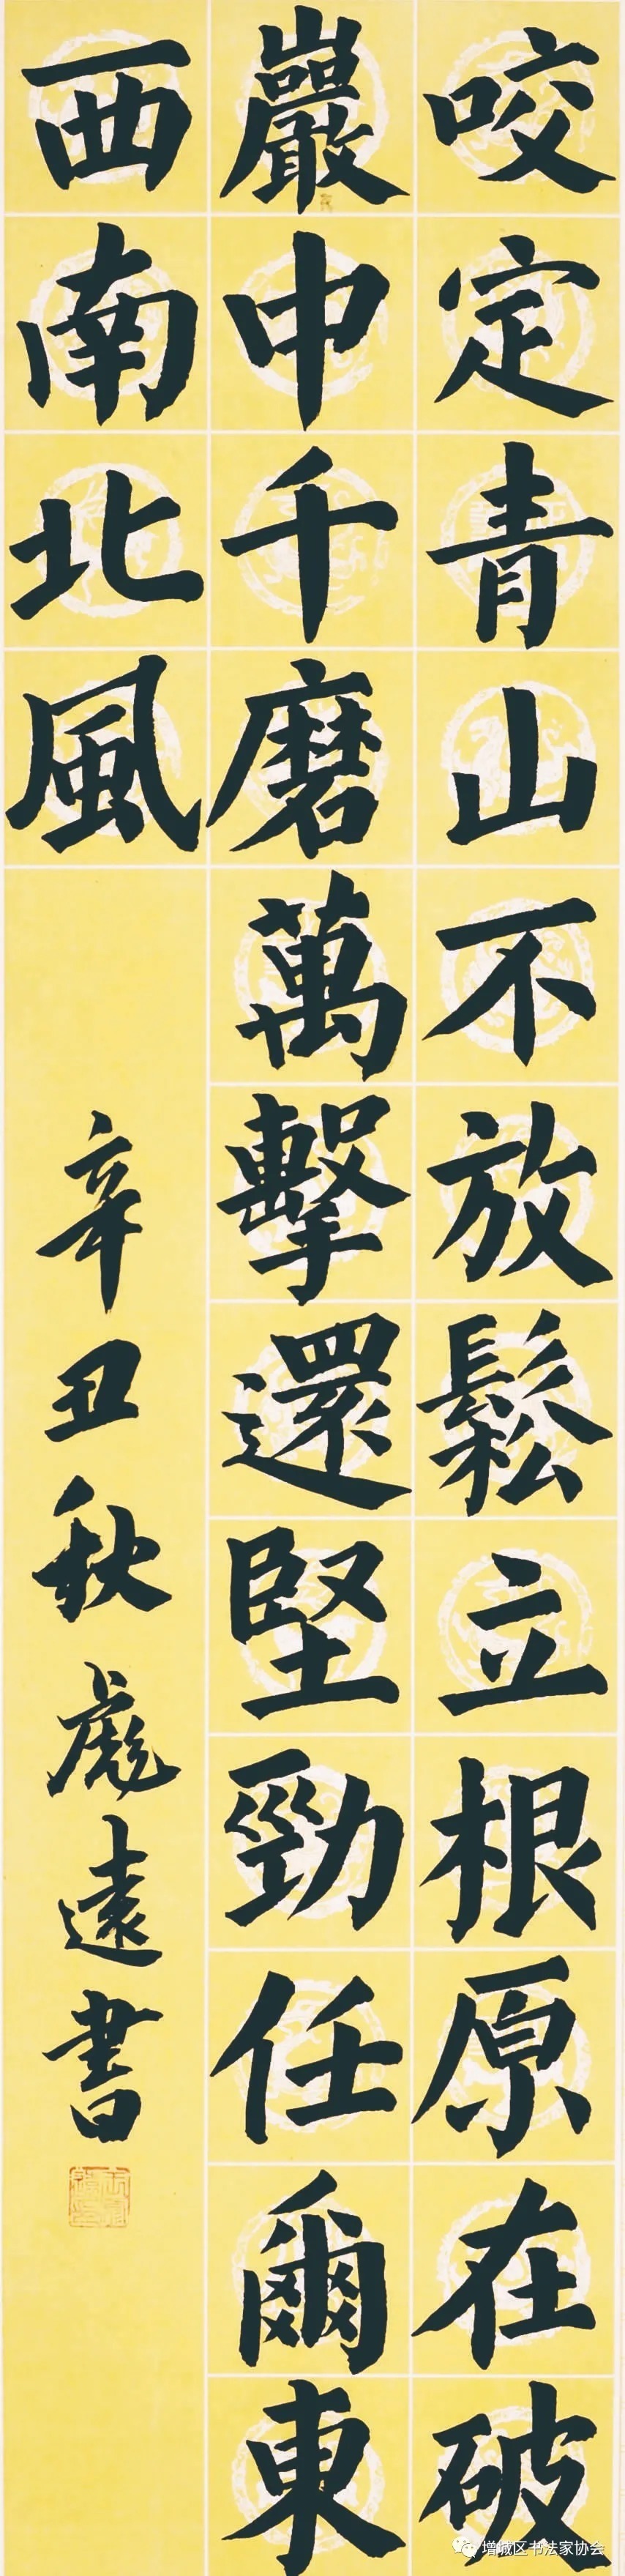 咬定青山不放鬆立根原在破
巖中千磨萬擊還堅勁任爾東
西南北風
辛丑秋彪遠書
增城区书法家协会